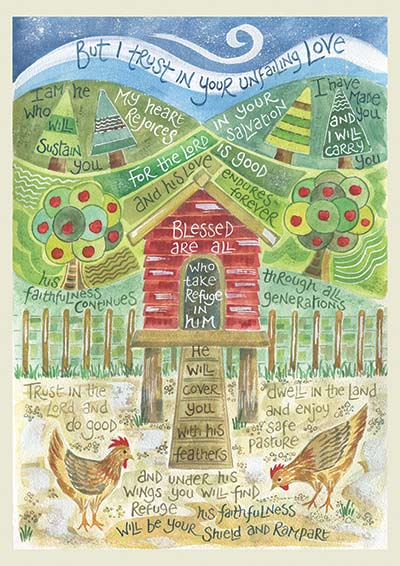 But I trust in your unfailing Love
I am he
who will
Sustain
you
My heart
Rejoices
in your
Salvation
I have
Made
you
and
I will
carry
you
For the Lord is good
and his love endures
forever
Blessed
are all
who
take
Refuge
in
him
his
faithfulness
continues
through all
generations
He
will
cover
you
with his
feathers
Trust in the
Lord and
do good
dwell in the land
and enjoy
safe
pasture
and under his
wings you will find
Refuge his faithfulness
will be your Shield and Rampart